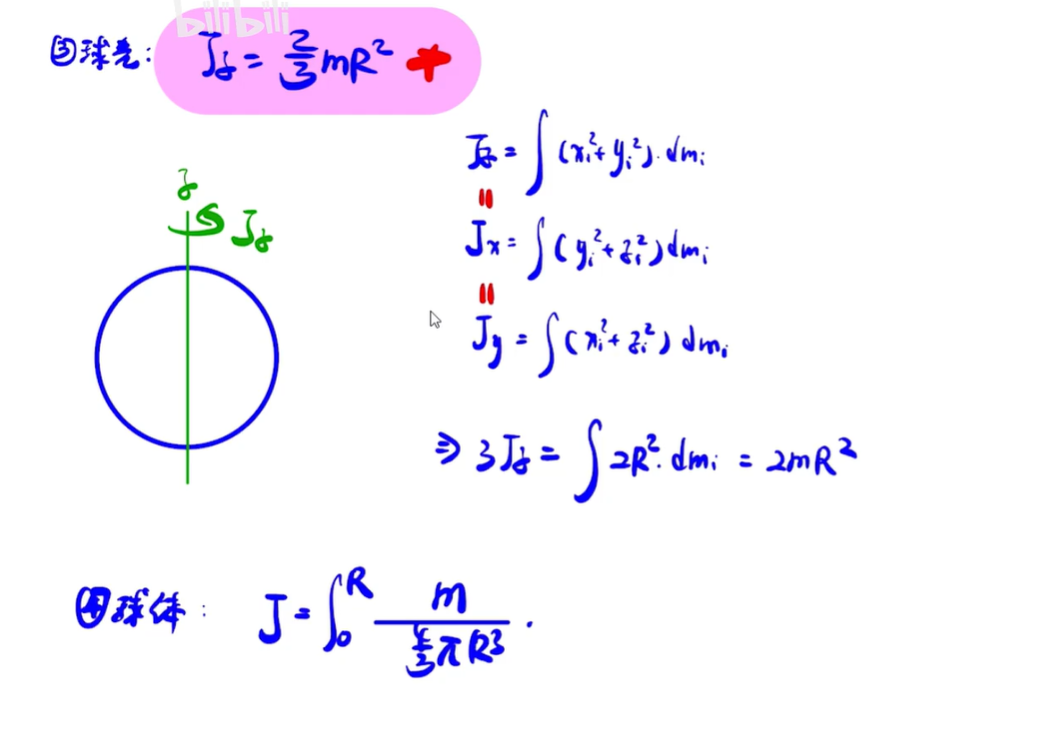 bilibili
③球壳: J_z = 2/3 mR²
J_z = ∫(x_i² + y_i²)·dm_i
=
z
J_z
J_x = ∫(y_i² + z_i²)dm_i
=
J_y = ∫(x_i² + z_i²)dm_i
⇒ 3J_z = ∫2R²·dm_i = 2mR²
④球体: J = ∫₀ᴿ m/(4/3 πR³) ·